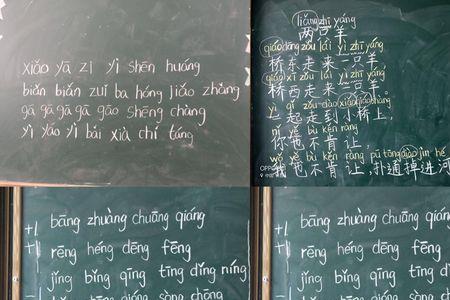 xiǎo yā zǐ yì shēn huáng
biǎn biǎn zuǐ ba hóng jiǎo zhǎng
gā gā gā gā gāo shēng chàng
yì yáo yì bǎi xià chí táng
liǎng zhī yáng
两只羊
qiáo dōng zǒu lái yì zhī yáng
桥东走来一只羊
qiáo xī zǒu lái yì zhī yáng
桥西走来一只羊
yì qǐ zǒu dào xiǎo qiáo shàng
一起走到小桥上
nǐ yě bù kěn ràng
你也不肯让
wǒ yě bù kěn ràng pū tōng diào jìn hé
我也不肯让,扑通掉进河
OPPO
+1 bāng zhuàng chuāng qiáng
+1 rēng héng dēng fēng
jǐng bīng qīng tīng dǐng níng
bāng zhuàng chuāng qiáng
rēng héng dēng fēng
jǐng bīng qīng tīng dǐng